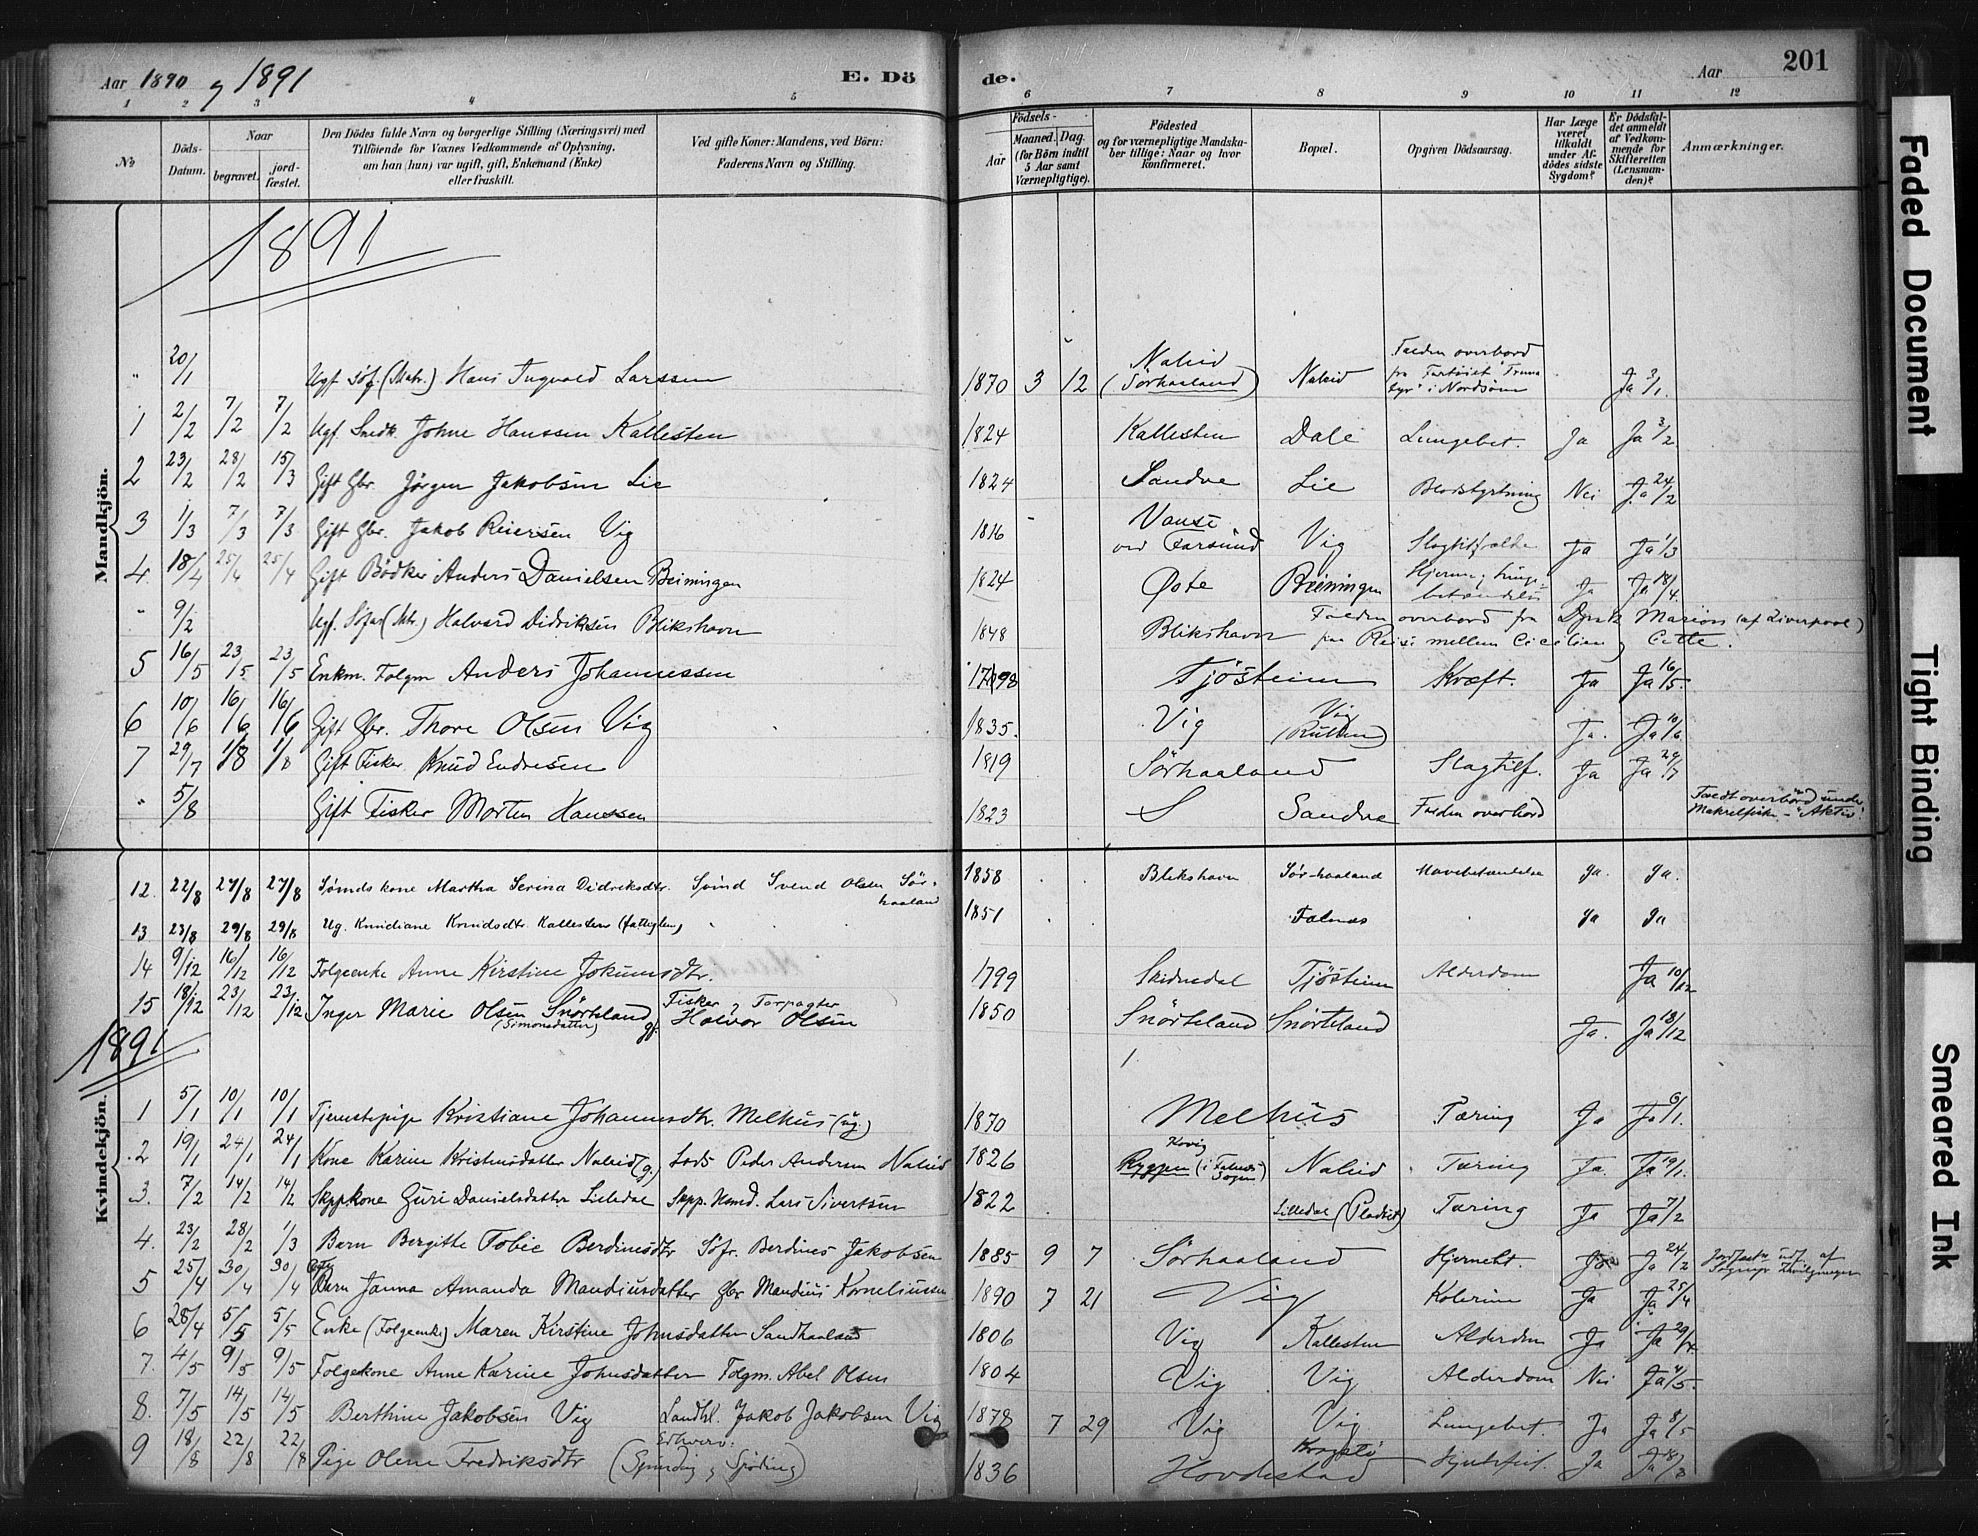 Aar 1890 og 1891 E. Dö de. Aar 201
1 2 3 4 5 6 7 8 9 10 11 12
No
Döds-Datum.
Naar begravet. jordfæstet.
Den Dödes fulde Navn og borgerlige Stilling (Næringsvei) med Tilföiende for Voxnes Vedkommende af Oplysning, om han (hun) var ugift, gift, Enkemand (Enke) eller fraskilt.
Ved gifte Koner: Mandens, ved Börn: Faderens Navn og Stilling.
Födsels-
Aar Maaned. Dag. (for Börn indtil 5 Aar samt Værnepligtige).
Födested og for værnepligtige Mandskaber tillige: Naar og hvor konfirmeret.
Bopæl.
Opgiven Dödsaarsag.
Har Læge været tilkaldt under Afdödes sidste Sygdom?
Er Dödsfaldet anmeldt af Vedkommende for Skifteretten (Lensmanden)?
Anmærkninger.
1891
Mandkjön.
" 20/1 Ugf. Söf. (Matr.) Hans Ingvald Larssen 1870 3 12 Nalvid (Sörhaaland) Nalvid Falden overbord fra Fartöiet i Nordsöen Ja 3/1.
1 2/2 7/2 7/2 Ugf. Snedk. Johne Hanssen Kallesten 1824 Kallesten Dale Lungebet. Ja Ja 3/2
2 23/2 28/2 15/3 Gift Gbr. Jörgen Jakobsen Lie 1824 Sandve Lie Blodstyrtning Nei Ja 24/2
3 1/3 7/3 7/3 Gift Gbr. Jakob Reiersen Vig 1816 Vanse ved Farsund Vig Slagtilfælde Ja Ja 1/3
4. 18/4 25/4 25/4 Gift Bödker Anders Danielsen Beiningen 1824 Öste Beiningen Hjerne og Lungebetændelse Ja Ja 18/4.
" 9/2 Ugf. Söfar (Mtr.) Halvard Didriksen Blikshavn 1848 Blikshavn Falden overbord fra Dpsk. Marion (af Liverpool) paa Reise mellem Cicilien og Cette.
5 16/5 23/5 23/5 Enkm. Folgm Anders Johannessen 1798 Tjöstheim Kræft. Ja Ja 16/5.
6 10/6 16/6 16/6 Gift Gbr. Thore Olsen Vig 1835. Vig Vig Ja. Ja 10/6
7 29/7 1/8 1/8 Gift Fisker. Knud Endresen 1819 Sörhaaland Slagtilf. Ja Ja 29/7
" 5/8 Gift Fisker Morten Hanssen 1823 S Sandve Falden overbord Faldt overbord under Makrelfiske - "Aktiv"
12. 22/8 27/8 27/8 Sömds kone Martha Serina Didriksdtr. Svend Olsen Sörhaaland 1858 Blikshavn Sörhaaland Mavebetændelse Ja. Ja.
13 23/8 29/8 29/8 Ug. Knudiane Knudsdtr Kallesten (fattiglem) 1851 Falnæs Ja Ja
14 9/12 16/12 16/12 Folgeenke Anne Kirstine Jokumsdtr. 1799 Skidnedal Tjöstheim Alderdom Ja 10/12
15 18/12 23/12 23/12 Inger Marie Olsen Snörteland (Simonsdatter) gf. Fisker og Forpagter Halvor Olsen 1850 Snörteland Snörteland Ja. Ja 18/12
1891
Kvindekjön.
1 5/1 10/1 10/1 Tjenestepige Kristiane Johannesdtr. Melhus (ug.) 1870 Melhus Tæring Ja Ja 6/1.
2 19/1 24/1 24/1 Kone Karine Kristensdatter Nalvid (g.) Lods Peder Andersen Nalvid 1826 Ryggen (i Falnes Sogn) Nalvid Tæring Ja. Ja 19/1.
3. 7/2 14/2 14/2 Skppkone Guri Danielsdatter Lilledal Skpp. Lars Sivertsen 1822 Lilledal (Pladset) Tæring Ja Ja 7/2
4. 23/2 28/2 1/3 Barn Bergitte Tobie Berdinesdtr Söfr. Berdines Jakobsen 1885 9 7 Sörhaaland Hjernebt. Ja Ja 24/2
5 25/4 30/4 30/4 Barn Janna Amanda Mandiusdatter Gbr Mandius Korneliussen 1890 7 21 Vig Kolerine Ja Ja. 25/4
6 28/4 5/5 5/5 Enke (Folgeenke) Maren Kirstine Johnsdatter Sandhaaland 1806 Vig Kallesten Alderdom Ja Ja 29/4.
7. 4/5 9/5 9/5 Folgekone Anne Karine Johnsdatter Folgm. Abel Olsen 1804 Vig Vig Alderdom Nei Ja 4/5.
8. 7/5 14/5 14/5 Berthine Jakobsen Vig Landhl. Jakob Jakobsen Vig 1878 7 29 Vig Vig Lungebet. Ja Ja 8/5
9 18/8 22/8 22/8 Pige Olene Fredriksdtr Erhverv: (Spinding og Spöding) 1836 Hovdestad Ja Ja 18/8
Faded Document
Tight Binding
Smeared Ink